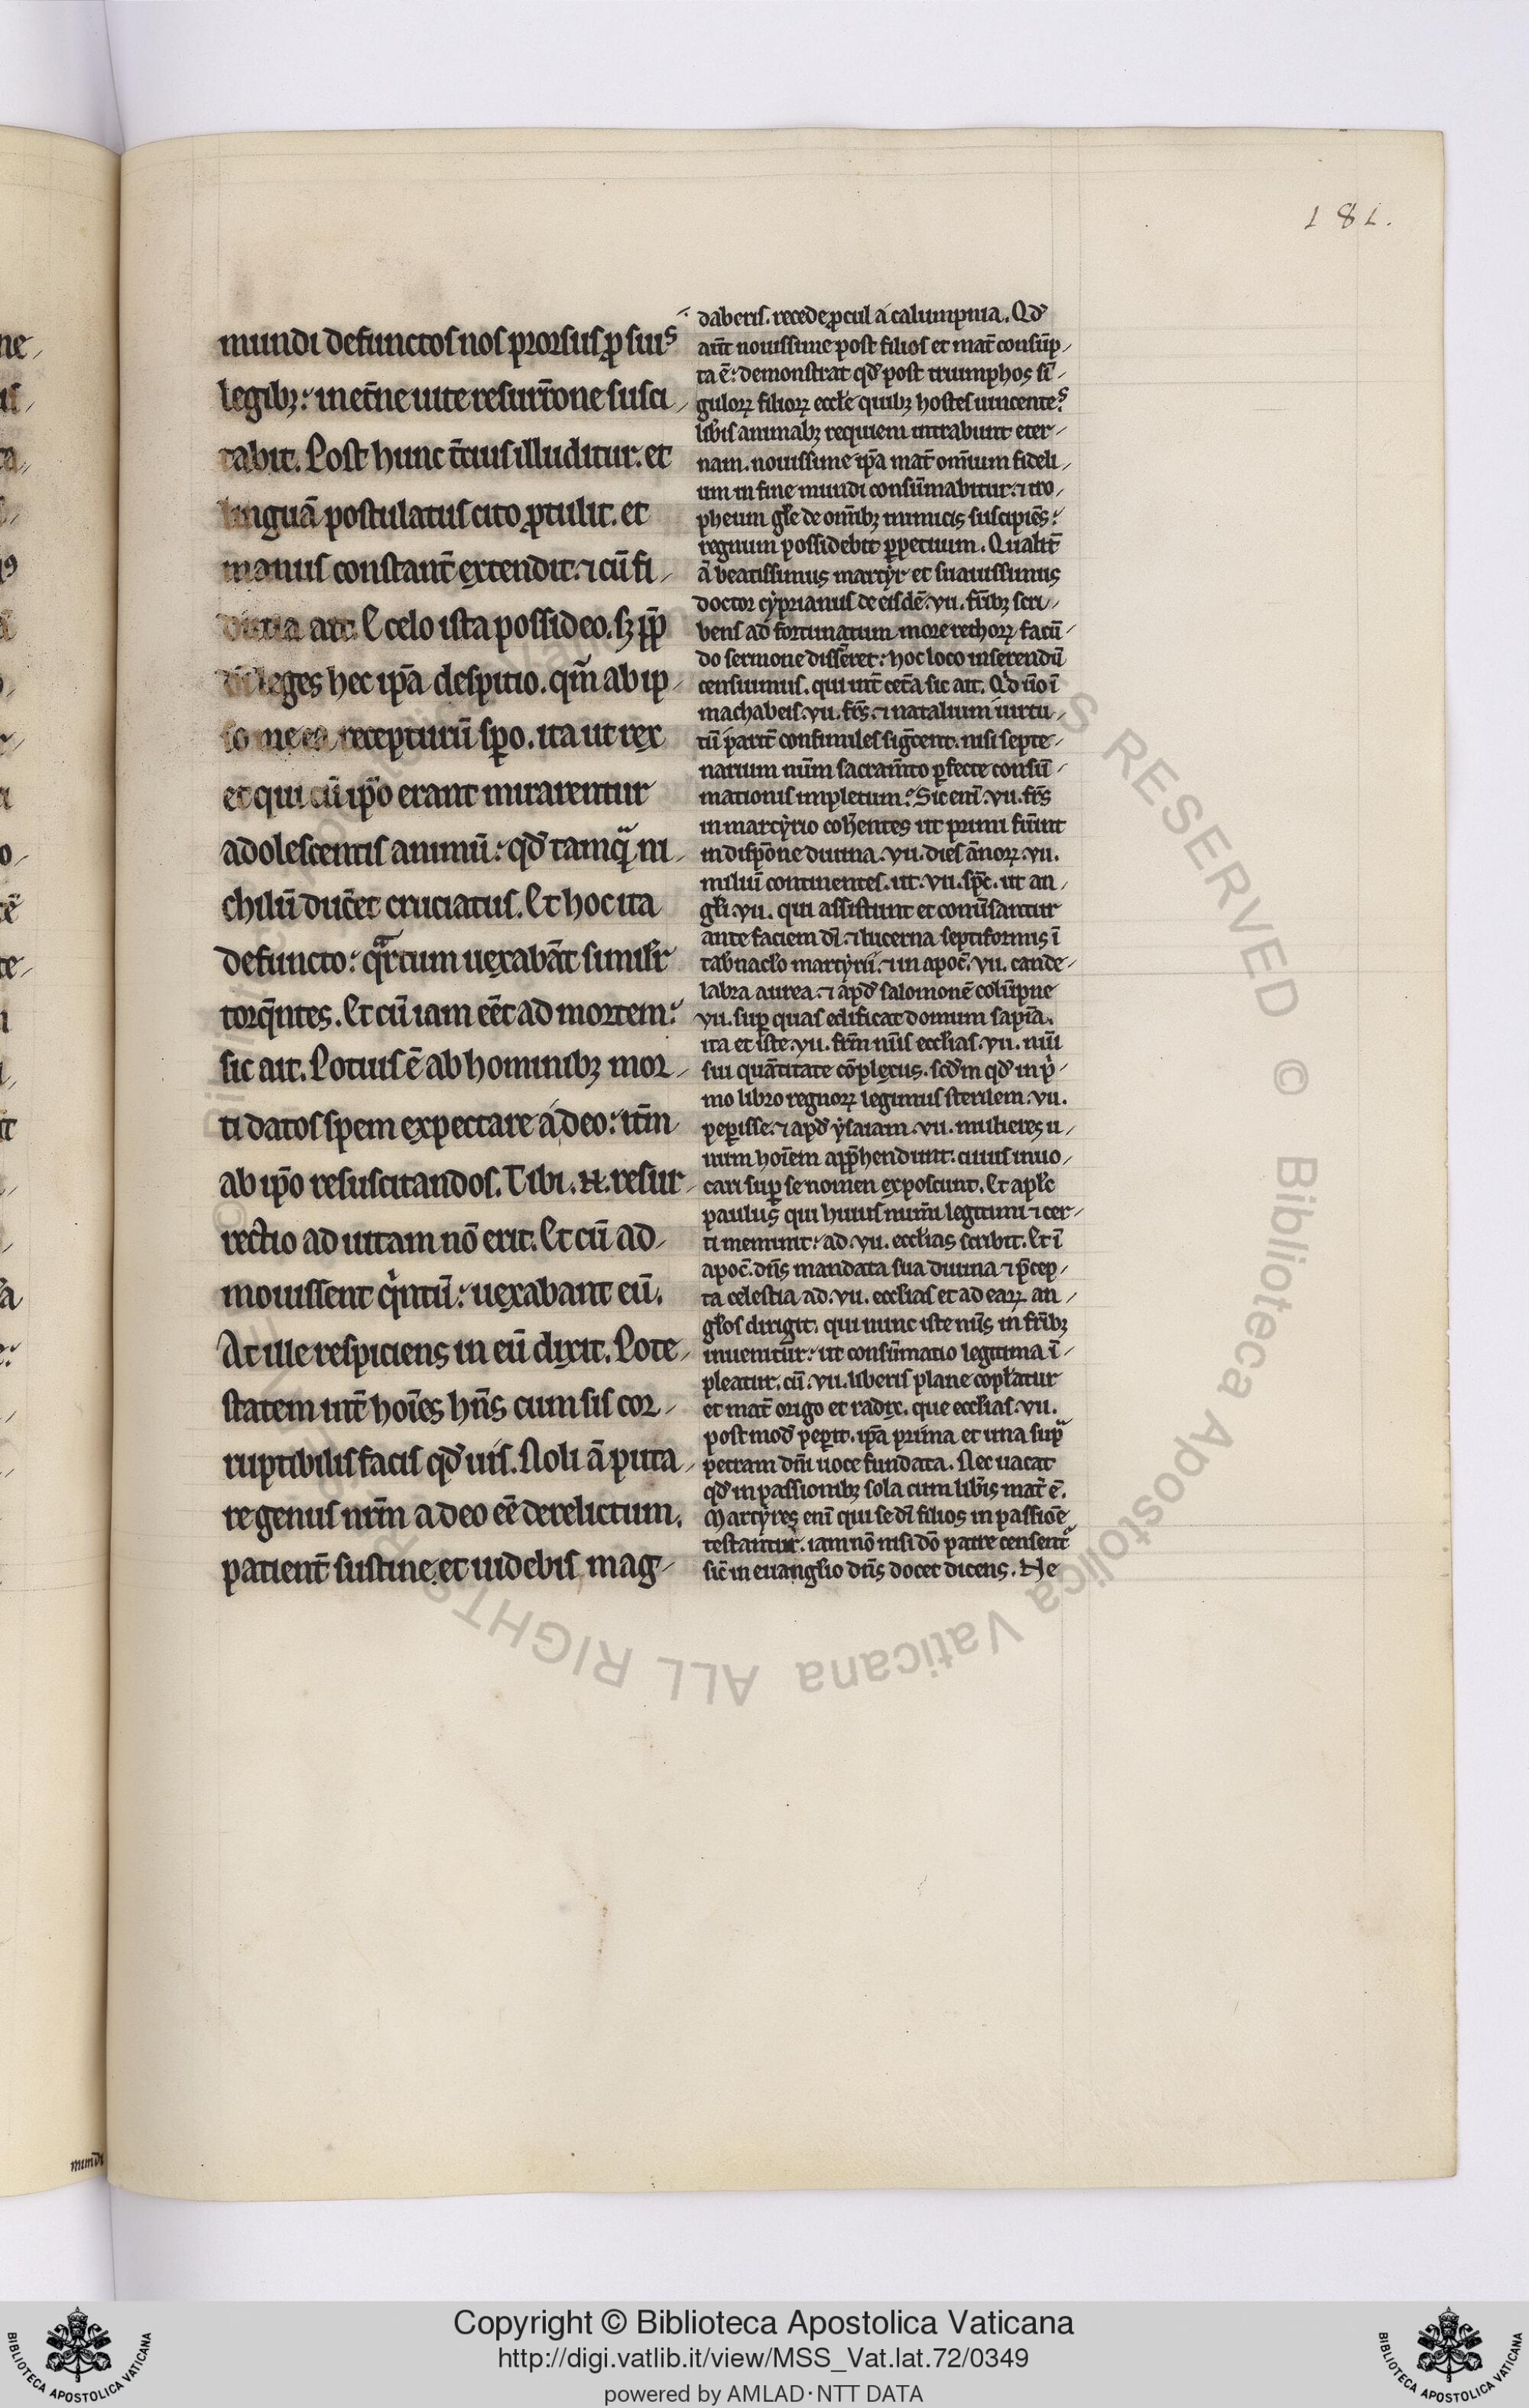 181.
mundi defunctos nos prorsus ꝓ suis
legibꝫ: in et̄ne uite resurr̄one susci
tabit. Post hunc t̄cius illuditur. et
linguā postulatus cito ꝓtulit. et
manus constant̄ extendit. ⁊ cū fi
ducia ait. E celo ista possideo. sꝫ ꝓp̄
di leges hec ip̄a despitio. qm̄ ab ip
so me ea recepturū sp̄o. ita ut rex
et qui cū ip̄o erant mirarentur
adolescentis animū: qd̄ tamqͣ ni
chilū ducēt cruciatus. Et hoc ita
defuncto: qͣrtum uexabāt similīr
torqn̄tes. Et cū iam eēt ad mortem:
sic ait. Potius ē ab hominibꝫ mor
ti datos spem expectare a deo: itm̄
ab ip̄o resuscitandos. Tibi .N. resur
rectio ad uitam nō erit. Et cū ad
mouissent qͥntū: uexabant eū.
At ille respiciens in eū dixit. Pote
statem int̄ hoīes hn̄s cum sis cor
ruptibilis facis qd̄ uis. Noli ā puta
re genus nrm̄ a deo eē derelictum.
patient̄ sustine. et uidebis mag
daberis. recede ꝓcul a calumpnia. Qd̄
aūt nouissime post filios et mat̄ consūp
ta ē: demonstrat qd̄ post triumphos sī
guloꝝ filioꝝ eccl̄e quibꝫ hostes uincentes
lib̄is animabꝫ requiem intrabunt eter
nam. nouissime ip̄a mat̄ omīum fideli
um in fine mundi consūmabitur. ⁊ tro
pheum gl̄e de omībꝫ inimicis suscipiēs:
regnum possidebit ꝑpetuum. Qualit̄
ā beatissimus martyr et suauissimus
doctor cyprianus de eisdē .vii. fr̄ibꝫ scri
bens ad fortunatum more rethoꝝ facū
do sermone dissēret: hoc loco inserendū
censuimus. qui int̄ cet̄a sic ait. Qd̄ ūo ī
machabeis .vii. fr̄s. ⁊ natalium uirtu
tū parit̄ consimiles siḡcent. nisi septe
narium nūm sacram̄to ꝑfecte consū
mationis impletum? Sic enī .vii. fr̄s
in martyrio coh̄entes ut primi fūint
in disp̄one diuina .vii. dies ānoꝝ .vii.
miliū continentes. ut .vii. sp̄c. ut an
gl̄i .vii. qui assistunt et conūsantur
ante faciem dī. ⁊ lucerna septiformis ī
tab̄nacl̄o martyrii. ⁊ in apoc̄ .vii. cande
labra aurea. ⁊ apd̄ salomonē colūpne
vii. suꝑ quas edificat domum sapīa.
ita et iste .vii. fr̄m nūs eccl̄ias .vii. nūi
sui quātitate cōplexus. scd̄m qd̄ in pͥ
mo libro regnoꝝ legimus sterilem .vii.
peperisse. ⁊ apd̄ ysaiam .vii. mulieres u
num hoīem app̄hendunt. cuius inuo
cari suꝑ se nomen exposcunt. Et apl̄c
paulus qui huius num̄i legitimi ⁊ cer
ti meminit: ad .vii. eccl̄ias scribit. Et ī
apoc̄. dn̄s mandata sua diuina ⁊ p̄cep
ta celestia ad .vii. eccl̄ias et ad eaꝝ an
gl̄os dirigit. qui nunc iste nūs in fr̄ibꝫ
inuenitur: ut consūmatio legitima ī
pleatur. cū .vii. liberis plane copl̄atur
et mat̄ origo et radix. que eccl̄ias .vii.
post mod̄ pep̄it. ip̄a prima et una supͣ
petram dn̄i uoce fundata. Nec uacat
qd̄ in passionibꝫ sola cum lib̄is mat̄ ē.
Martyres enī qui se dī filios in passiōe
testantur. iam nō nisi dō patre censent̄
sic̄ in euangl̄io dn̄s docet dicens. Ne
Copyright © Biblioteca Apostolica Vaticana
http://digi.vatlib.it/view/MSS_Vat.lat.72/0349
powered by AMLAD·NTT DATA
BIBLIOTECA APOSTOLICA VATICANA
BIBLIOTECA APOSTOLICA VATICANA